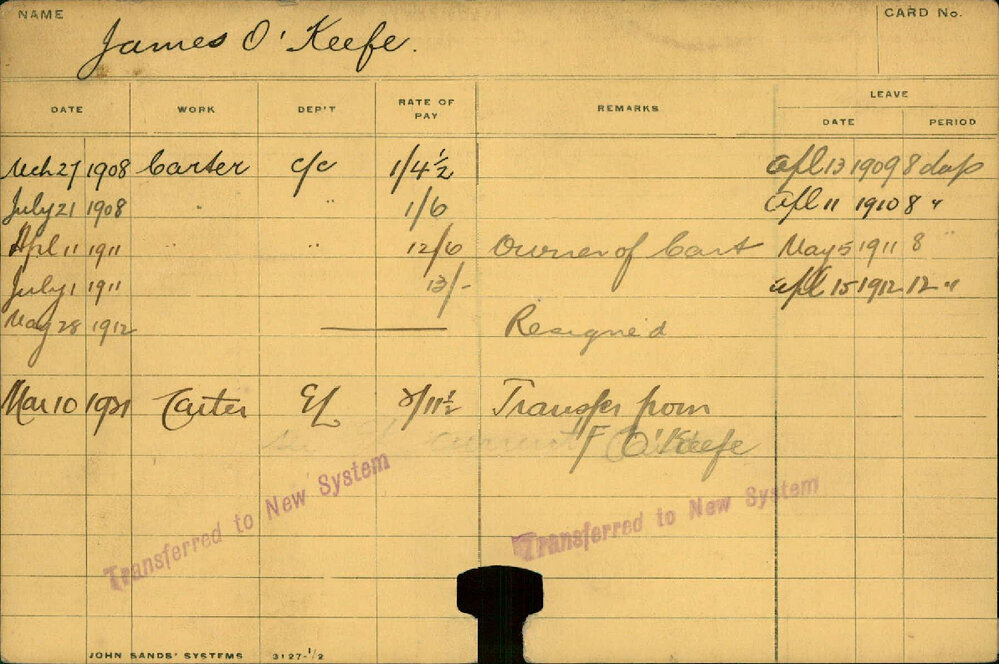 NAME James O'Keefe. CARD No.
LEAVE
DATE WORK DEP'T RATE OF PAY REMARKS DATE PERIOD
Mch 27 1908 Carter c/c 1/4½ Apl 13 1909 8 days
July 21 1908 " " 1/6 Apl 11 1910 8 "
Apl 11 1911 " " 12/6 Owner of Cart May 5 1911 8 "
July 1 1911 13/- Apl 15 1912 12 "
May 28 1912 Resigned
Mar 10 1921 Carter 2/11½ Transfer from
F O'Keefe
Transferred to New System
Transferred to New System
JOHN SANDS' SYSTEMS 3127-1/2